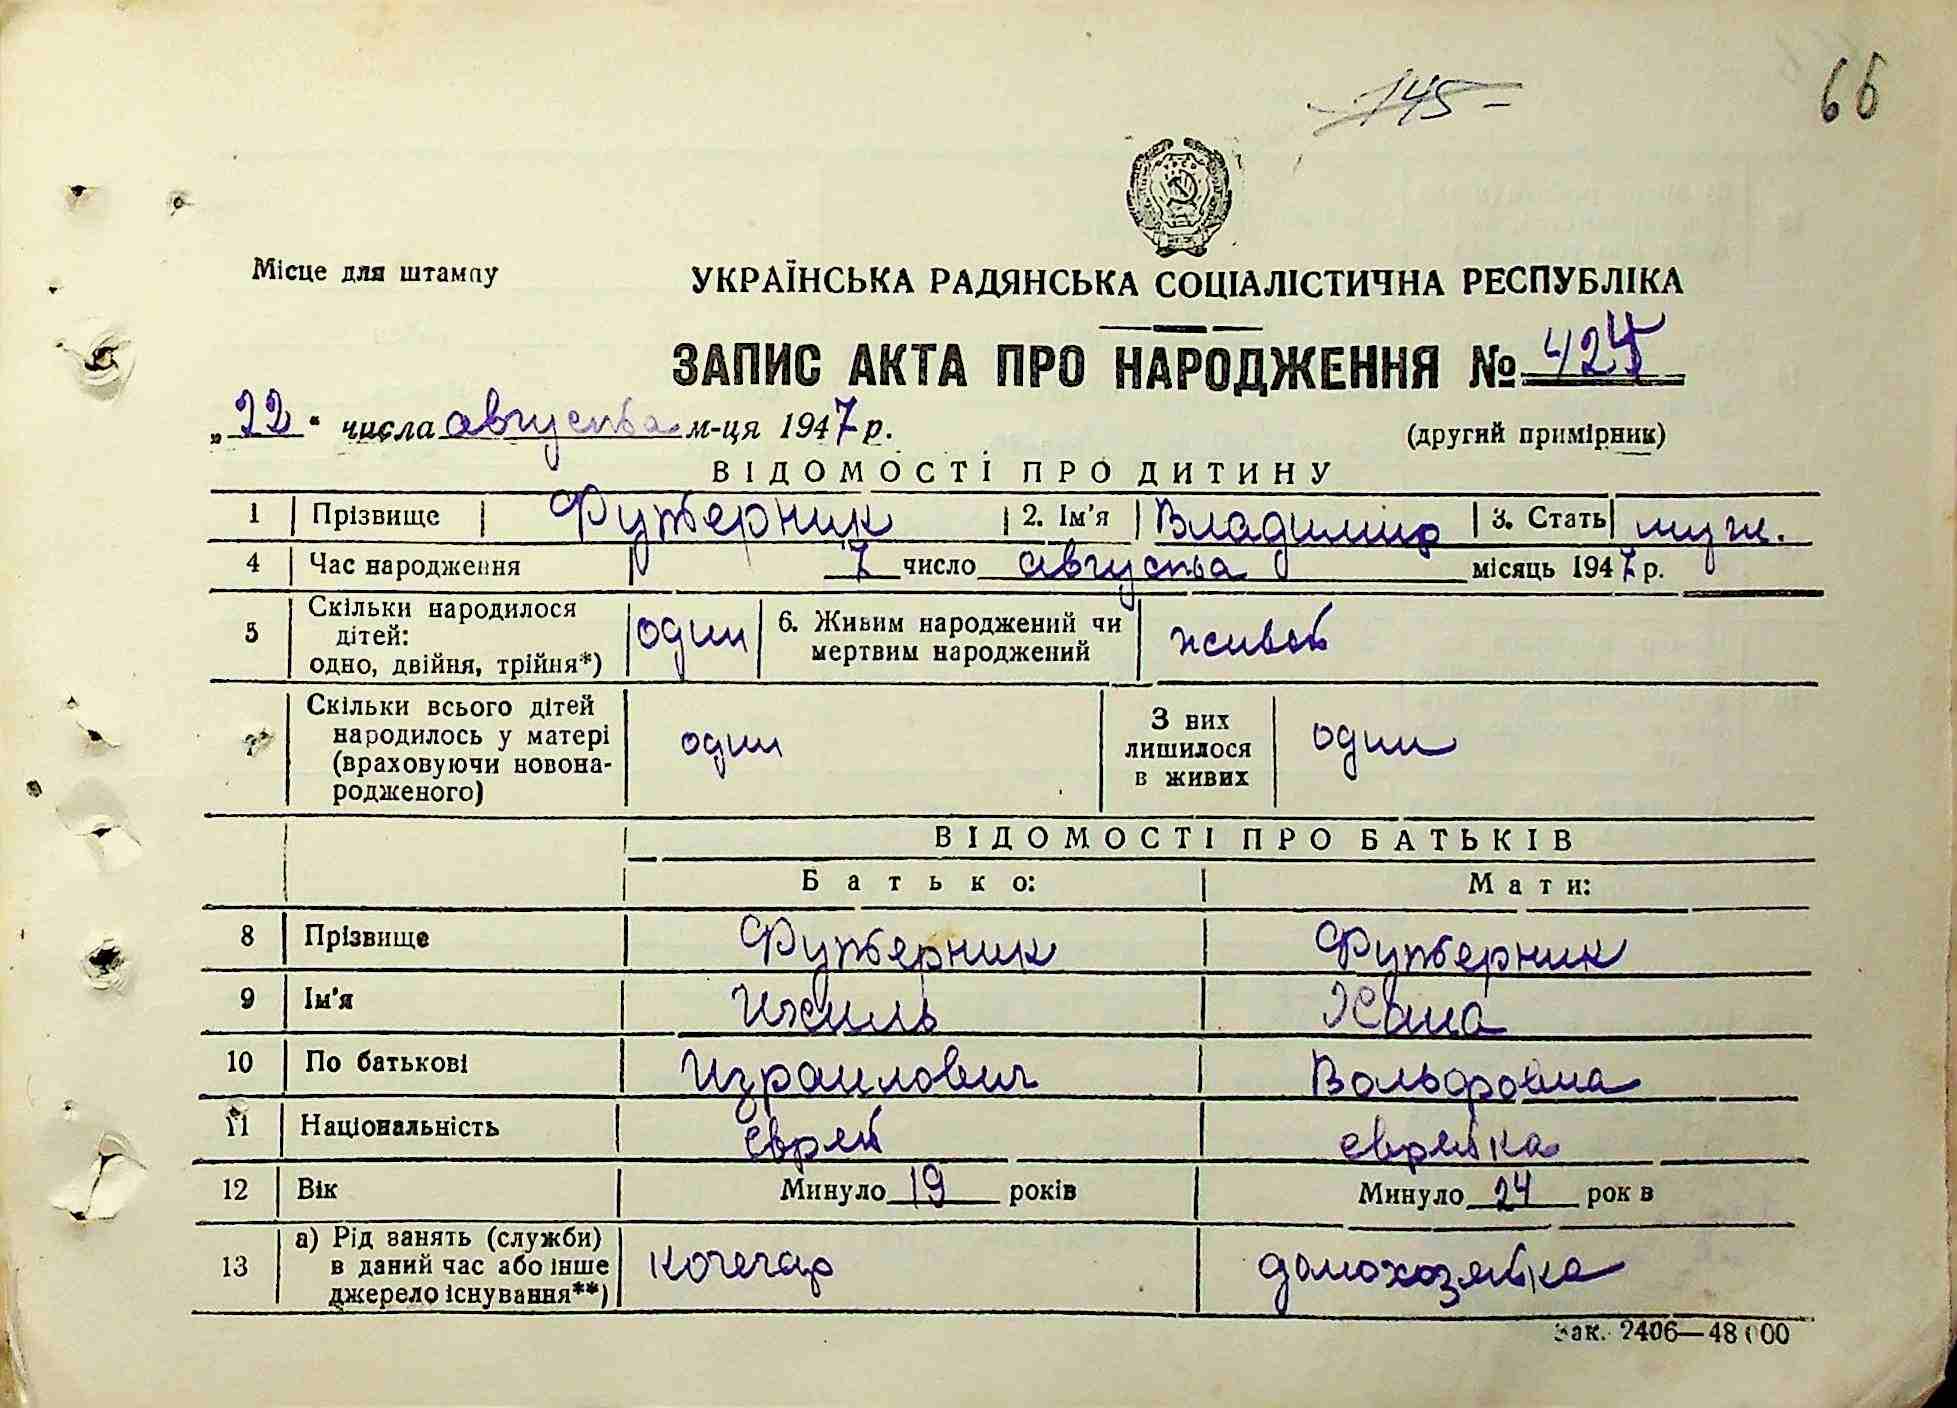 145-
66
Місце для штампу
УКРАЇНСЬКА РАДЯНСЬКА СОЦІАЛІСТИЧНА РЕСПУБЛІКА
ЗАПИС АКТА ПРО НАРОДЖЕННЯ № 425
„22“ числа августа м-ця 1947 р.
(другий примірник)
ВІДОМОСТІ ПРО ДИТИНУ
1 Прізвище Футерник 2. Ім'я Владимир 3. Стать муж.
4 Час народження 7 число августа місяць 1947 р.
5 Скільки народилося дітей: одно, двійня, трійня*) один 6. Живим народжений чи мертвим народжений живой
7 Скільки всього дітей народилось у матері (враховуючи новонародженого) один З них лишилося в живих один
ВІДОМОСТІ ПРО БАТЬКІВ
Батько: Мати:
8 Прізвище Футерник Футерник
9 Ім'я Ихиль Хана
10 По батькові Израилович Вольфовна
11 Національність еврей еврейка
12 Вік Минуло 19 років Минуло 24 рок в
13 а) Рід занять (служби) в даний час або інше джерело існування**) кочегар домохозяйка
Зак. 2406—48000